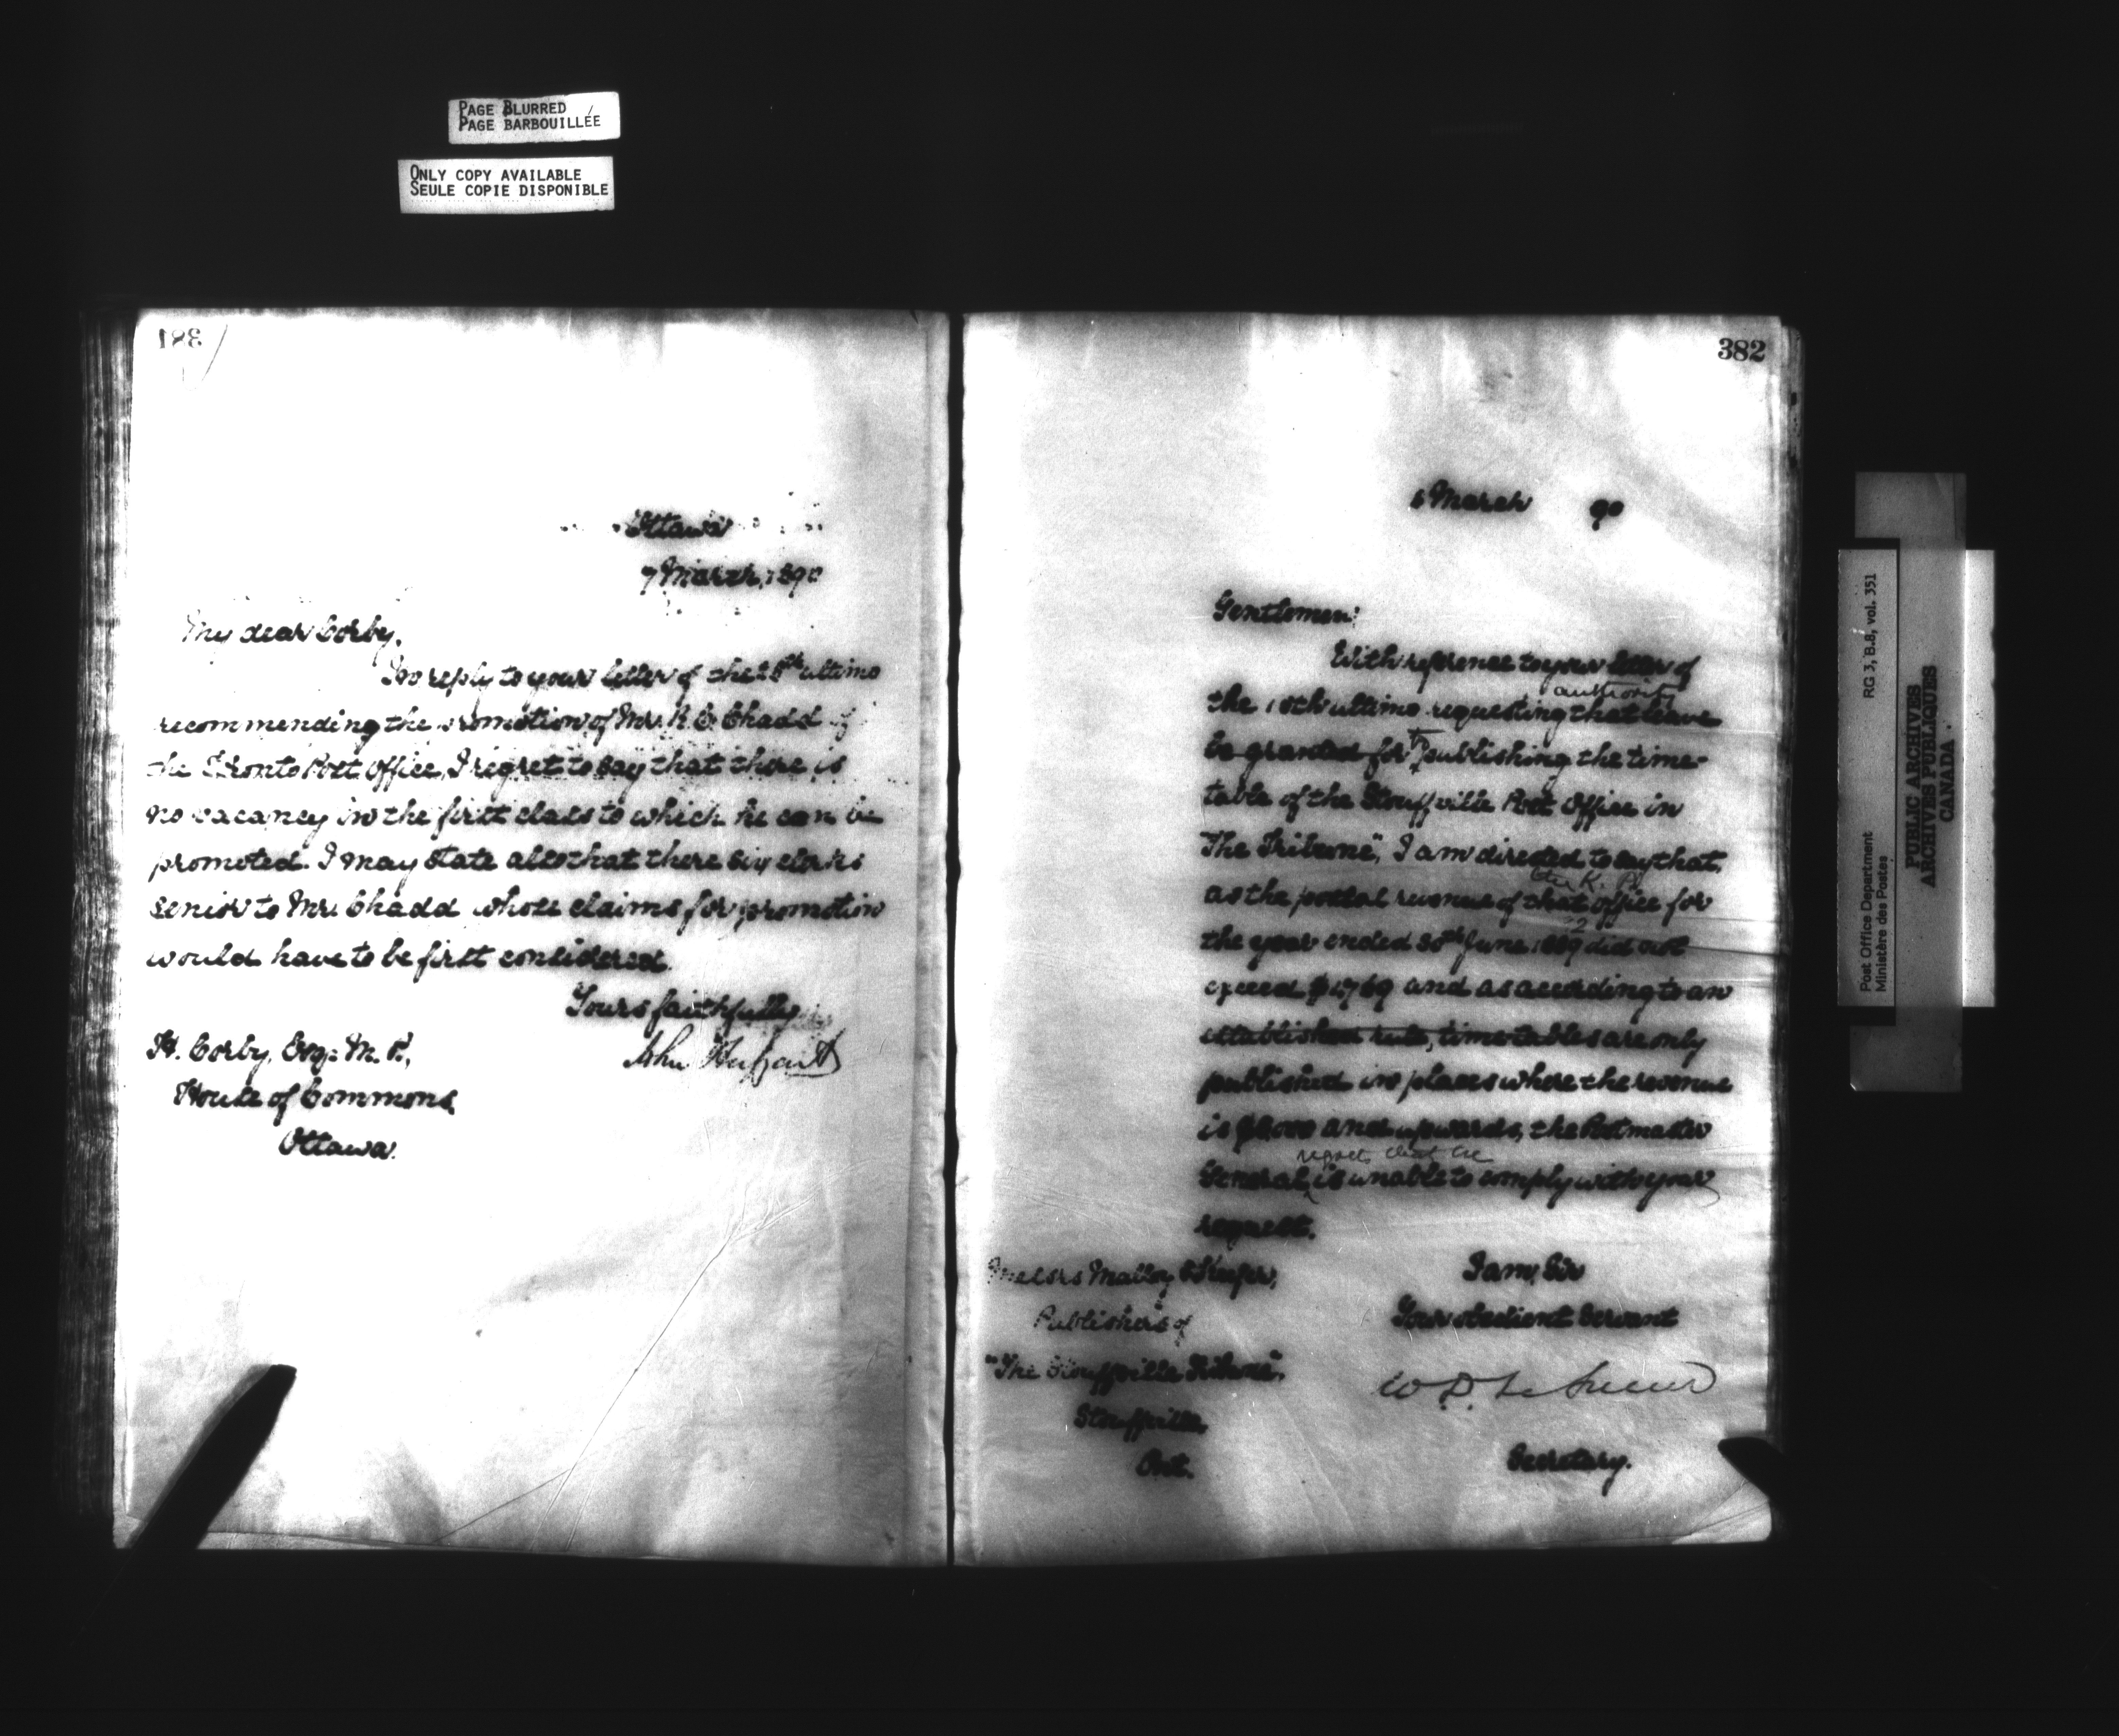 PAGE BLURRED
PAGE BARBOUILLÉE
ONLY COPY AVAILABLE
SEULE COPIE DISPONIBLE
381
Ottawa
7 March, 1890
My dear Corby,
In reply to your letter of the 28th ultimo
recommending the promotion of Mr. R. C. Chadd of
the Toronto Post Office, I regret to say that there is
no vacancy in the first class to which he can be
promoted. I may state also that there six clerks
senior to Mr. Chadd whose claims for promotion
would have to be first considered.
Yours faithfully
John Haggart
H. Corby, Esq. M. P.,
House of Commons
Ottawa.
382
6 March 90
Gentlemen:
With reference to your letter of
authority
the 18th ultimo requesting that leave
be granted for publishing the time-
table of the Stouffville Post Office in
"The Tribune", I am directed to say that,
as the postal revenue of that office for
the year ended 30th June 1889 did not
exceed $1,769 and as according to an
established rule, time tables are only
published in places where the revenue
is and upwards, the Postmaster
regrets that he
General is unable to comply with your
request.
I am, Sir
Your obedient Servant
W. D. LeSueur
Secretary.
Messrs Malloy &
Publishers of
"The Stouffville Tribune",
Stouffville,
Ont.
Post Office Department
Ministère des Postes
RG 3, B.8, vol. 351
PUBLIC ARCHIVES
ARCHIVES PUBLIQUES
CANADA